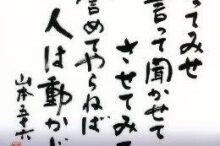 ってみせ
言って聞かせて
させてみ
誉めてやらねば
人は動かじ
山本五十六